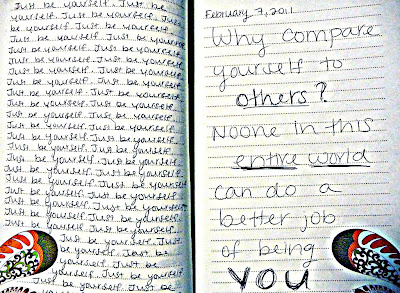 Just be yourself. Just be
Just be yourself. Just be yourself.
be yourself. Just be yourself.
Just be yourself. Just be yourself.
Just be yourself. Just be yourself.
Just be yourself. Just be yourself.
Just be yourself. Just be yourself.
Just be yourself. Just be yourself.
Just be yourself. Just be yourself.
Just be yourself. Just be yourself.
Just be yourself. Just be yourself.
Just be yourself. Just be yourself.
Just be yourself. Just be yourself.
Just be yourself. Just be yourself.
Just be yourself. Just be yourself.
Just be yourself. Just be yourself.
Just be yourself. Just be yourself.
Just be yourself. Just be yourself.
Just be yourself. Just be yourself.
Just be yourself. Just
be yourself. Just be
yourself. Just be
yourself. Just be
Just be yourself. Just be
February 7, 2011
Why compare
yourself to
others?
Noone in this
entire world
can do a
better job
of being
YOU